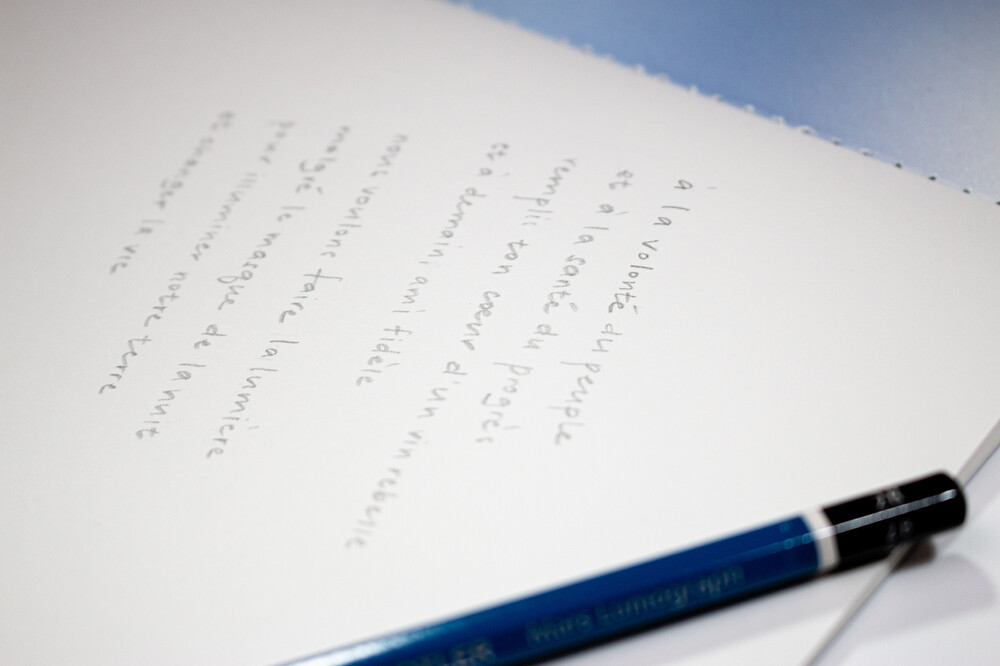 à la volonté du peuple
et à la santé du progrès
remplis ton coeur d'un vin rebelle
et à demain ami fidèle
nous voulons faire la lumière
malgré le masque de la nuit
pour illuminer notre terre
et changer la vie